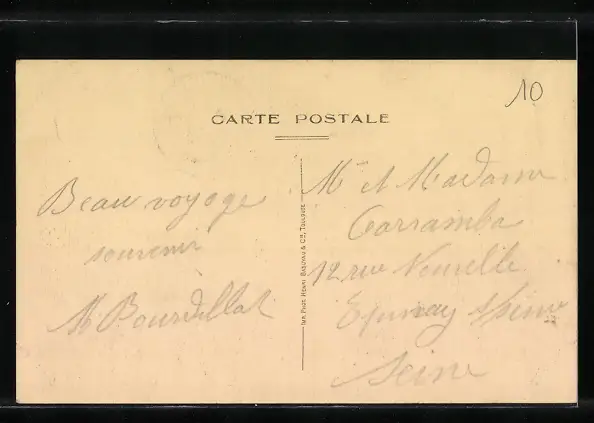 10
CARTE POSTALE
Beau voyage
souvenir
M Bourdillat
Mr et Madame
Carramba
12 rue Nouvelle
Epinay s/Seine
Seine
IMP. PHOT. HENRI BASUYAU & CIE, TOULOUSE